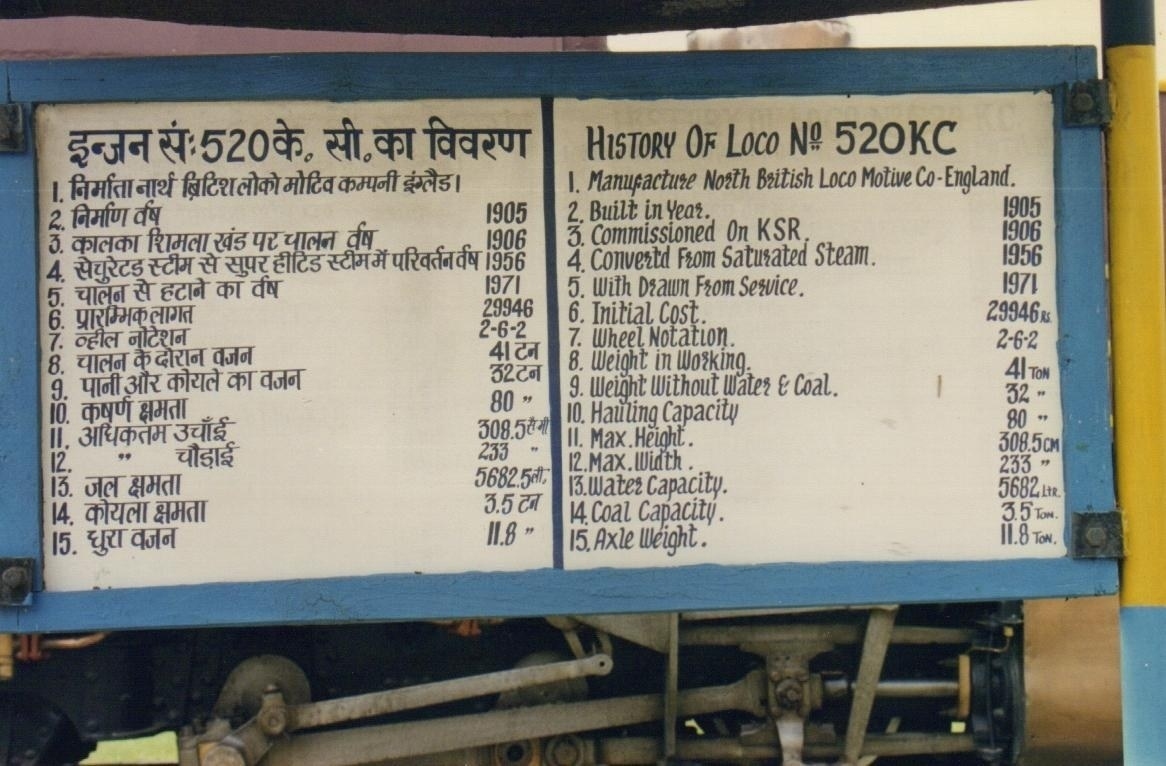 इन्जन सं: 520 के. सी. का विवरण
1. निर्माता नार्थ ब्रिटिश लोको मोटिव कम्पनी इंग्लैड।
2. निर्माण र्वष 1905
3. कालका शिमला खंड पर चालन र्वष 1906
4. सेचुरेटड स्टीम से सुपर हीटिड स्टीम में परिवर्तन र्वष 1956
5. चालन से हटाने का र्वष 1971
6. प्रारम्मिक लागत 29946
7. व्हील नोटेशन 2-6-2
8. चालन के दोरान वजन 41 टन
9. पानी और कोयले का वजन 32 टन
10. कषर्ण क्षमता 80 "
11. अधिकतम उचाँई 308.5 सै.मी
12. " चौड़ाई 233 "
13. जल क्षमता 5682.5 ली.
14. कोयला क्षमता 3.5 टन
15. धुरा वजन 11.8 "
History Of Loco No 520KC
1. Manufacture North British Loco Motive Co-England.
2. Built in Year. 1905
3. Commissioned On KSR. 1906
4. Convertd From Saturated Steam. 1956
5. With Drawn From Service. 1971
6. Initial Cost. 29946 Rs.
7. Wheel Notation. 2-6-2
8. Weight in Working. 41 Ton
9. Weight Without Water & Coal. 32 "
10. Hauling Capacity 80 "
11. Max. Height. 308.5 CM
12. Max. Width. 233 "
13. Water Capacity. 5682 Ltr.
14. Coal Capacity. 3.5 Ton.
15. Axle Weight. 11.8 Ton.